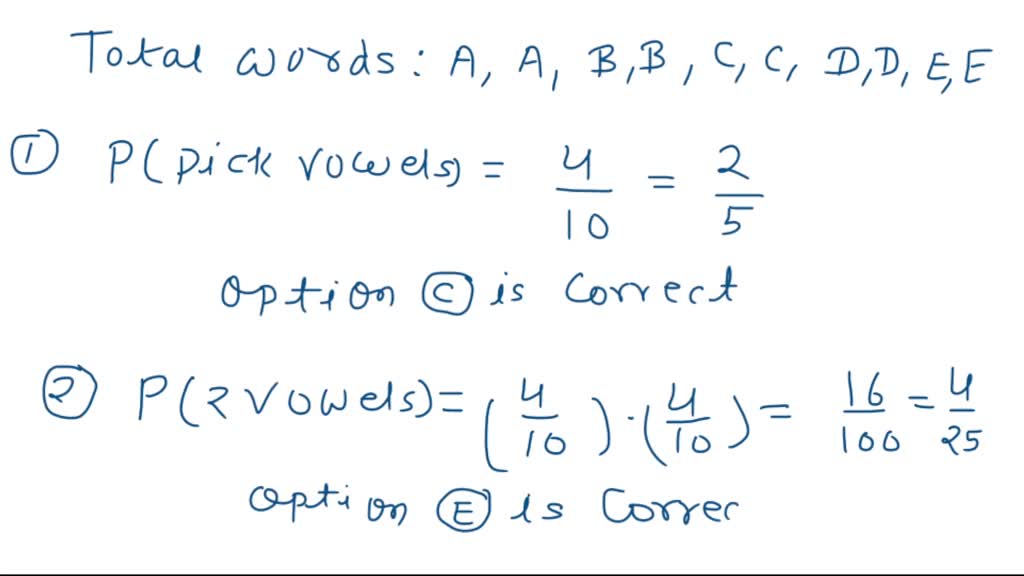 Total words: A, A, B,B, C, C, D,D, E,E
① P(pick vowels) = 4/10 = 2/5
option Ⓒ is correct
② P(2 vowels) = (4/10)·(4/10) = 16/100 = 4/25
option Ⓔ is Correc